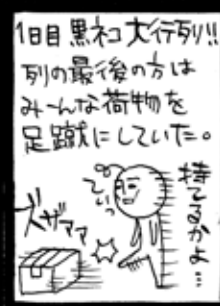 1日目黒ネコ大行列!!
列の最後の方は
み〜んな荷物を
足蹴にしていた。
持てるかよ…
てぃっ
ズザァァ